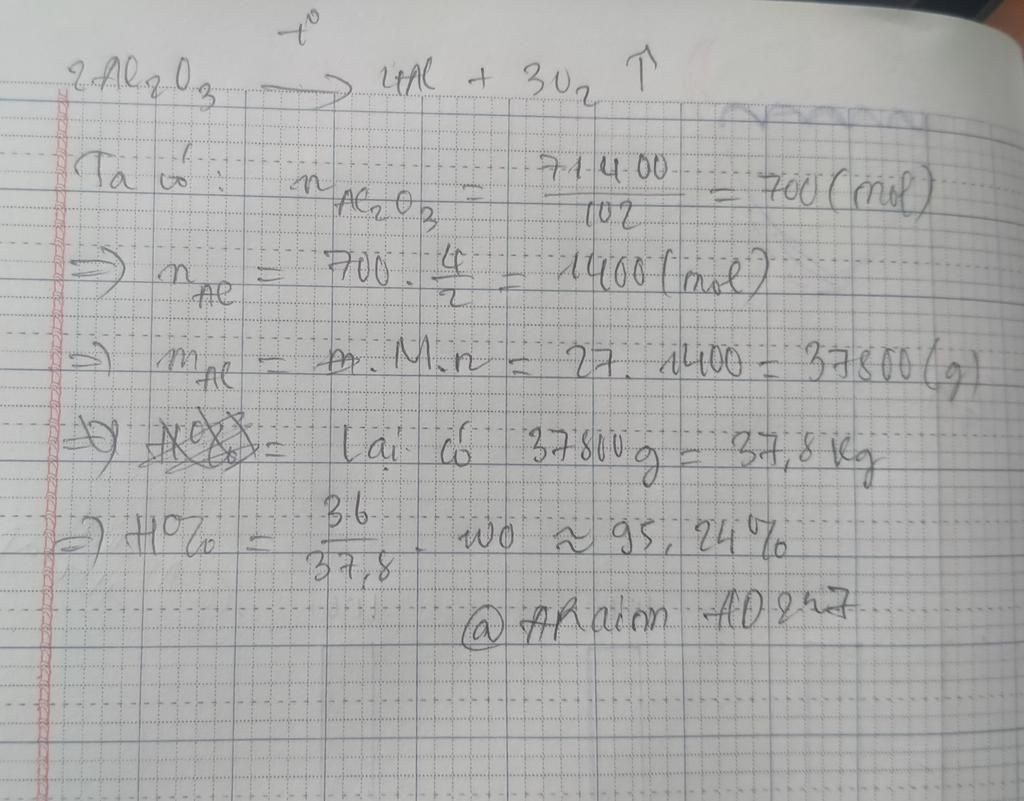 t°
2Al₂O₃ ⟶ 4Al + 3O₂ ↑
Ta có: n Al₂O₃ = 71400/102 = 700 (mol)
=> n Al = 700 . 4/2 = 1400 (mol)
=> m Al = M.n = 27. 1400 = 37800 (g)
=> = Lại có 37800g = 37,8 kg
=> H% = 36/37,8 . 100 ≈ 95,24%
@ARainn HD247